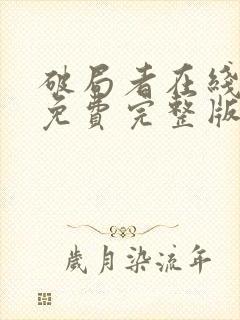 破局者在线
免費完整版
歲月染流年